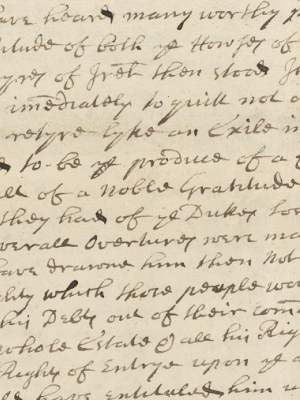 have heard many worthy
titude of both ye Howses of
yres of Irelt then stood
imediately to quitt not
retyre lyke an Exile
to be ye produce of a
all of a Noble Gratitude
they had of ye Dukes
verall Overtures were
have drawne him then Not
ality which those people
his Debts out of their
whole Estate & all his
Rights of Entrye upon ye
have entituled him